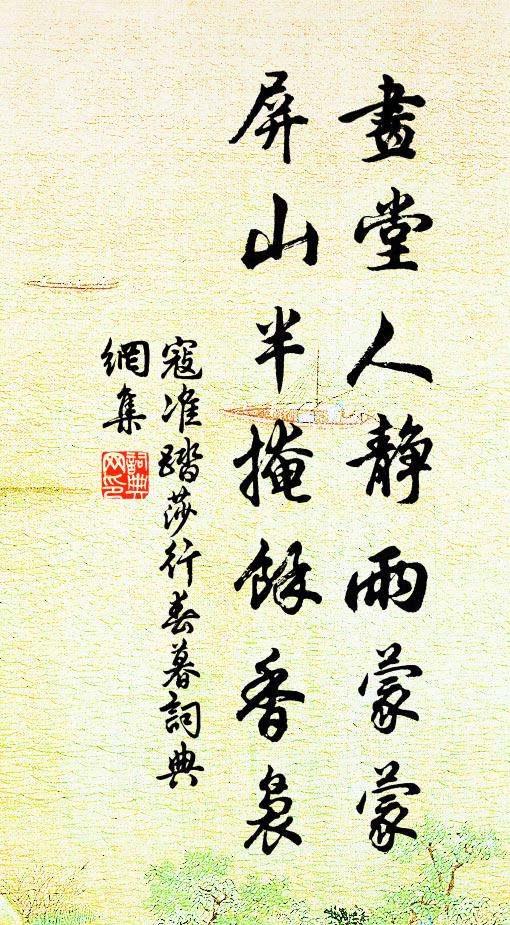 畫堂人靜雨蒙蒙
屏山半掩餘香裊
寇准踏莎行春暮詞典
網集
詞典
网印